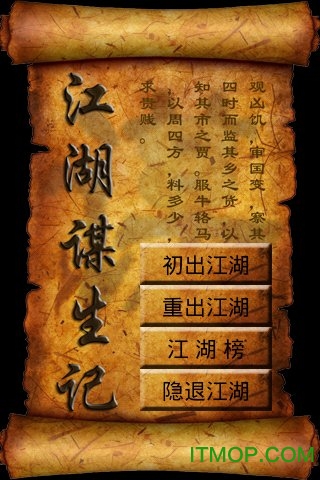 江湖谋生记
观凶饥，审国变，寨其
四时而监其乡之货，以
知其市之贾。服牛辂马
，以周四方，料多少，
求贵贱。
初出江湖
重出江湖
江湖榜
隐退江湖
ITMOP.COM